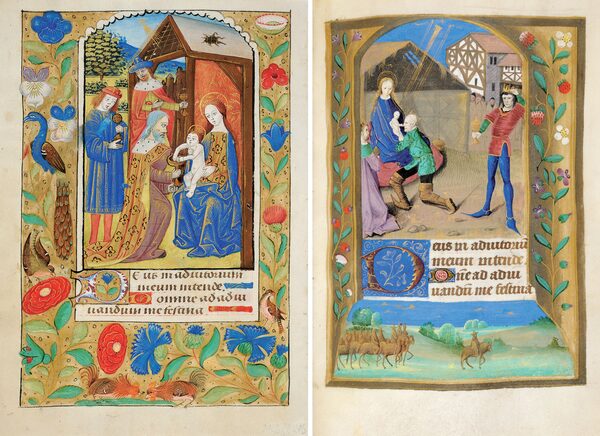 Deus in adiutorium
meum intende.
Domine ad adiu
uandum me festina
Deus in adiutoriū
meum intende.
Dne ad adiu
uandū me festina